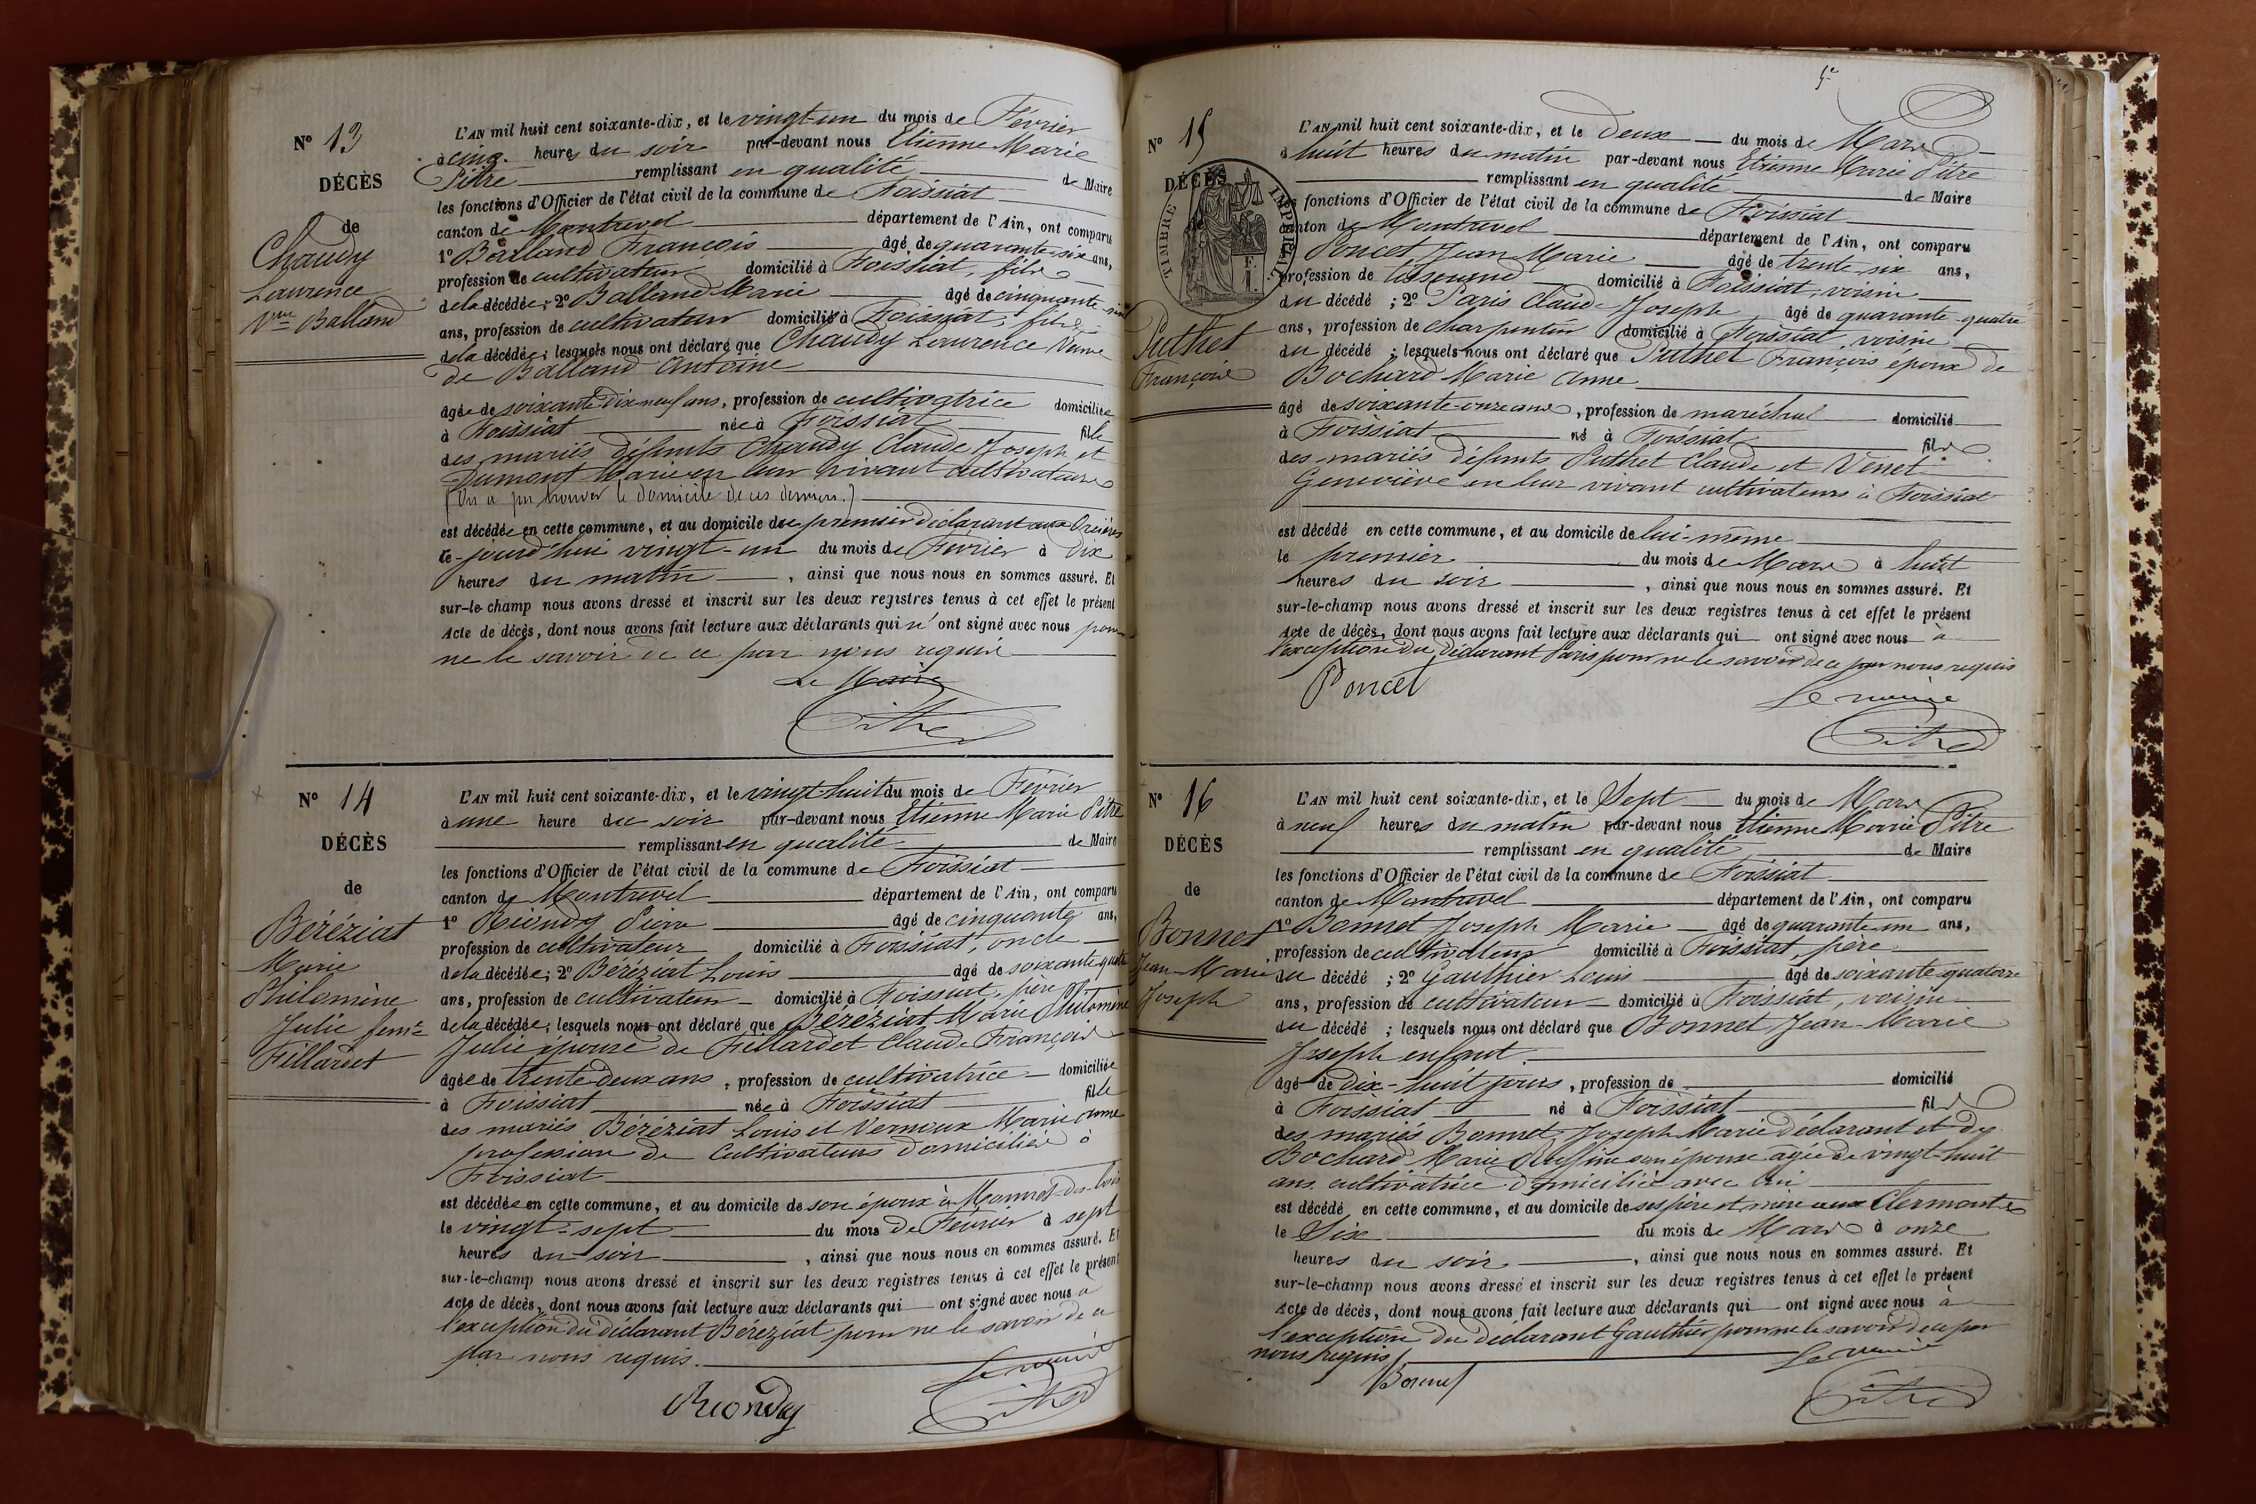 N° 13
DÉCÈS
de
Chaudy
Laurence
Vve Balland
L'AN mil huit cent soixante-dix, et le vingt-un du mois de Février
à cinq heures du soir par-devant nous Etienne Marie
Pitre remplissant en qualité de Maire
les fonctions d'Officier de l'état civil de la commune de Foissiat
canton de Montrevel département de l'Ain, ont comparu
1° Balland François âgé de quarante-six ans,
profession de cultivateur domicilié à Foissiat, fils
de la décédée; 2° Balland Marie âgé de cinquante
ans, profession de cultivateur domicilié à Foissiat, fils
de la décédée; lesquels nous ont déclaré que Chaudy Laurence Veuve
de Balland Antoine
âgée de soixante dix neuf ans, profession de cultivatrice domiciliée
à Foissiat née à Foissiat fille
des mariés défunts Chaudy Claude Joseph et
Dumont Marie en leur vivant cultivateurs
(On a pu trouver le domicile de ces derniers.)
est décédée en cette commune, et au domicile du premier déclarant aux
le jourd'hui vingt-un du mois de Février à dix
heures du matin, ainsi que nous nous en sommes assuré. Et
sur-le-champ nous avons dressé et inscrit sur les deux registres tenus à cet effet le présent
Acte de décès, dont nous avons fait lecture aux déclarants qui n'ont signé avec nous pour
ne le savoir de ce par nous requis
Le Maire
Pitre
N° 14
DÉCÈS
de
Béréziat
Marie
Philomène
Julie feme
Fillardet
L'AN mil huit cent soixante-dix, et le vingt huit du mois de Février
à une heure du soir par-devant nous Etienne Marie Pitre
remplissant en qualité de Maire
les fonctions d'Officier de l'état civil de la commune de Foissiat
canton de Montrevel département de l'Ain, ont comparu
1° Riondy Pierre âgé de cinquante ans,
profession de cultivateur domicilié à Foissiat, oncle
de la décédée; 2° Béréziat Louis âgé de soixante quatre
ans, profession de cultivateur domicilié à Foissiat, père
de la décédée; lesquels nous ont déclaré que Béréziat Marie Philomène
Julie épouse de Fillardet Claude François
âgée de trente deux ans, profession de cultivatrice domiciliée
à Foissiat née à Foissiat fille
des mariés Béréziat Louis et Vernoux Marie Anne
profession de Cultivateurs domiciliés à
Foissiat
est décédée en cette commune, et au domicile de son époux à
le vingt-sept du mois de Février à sept
heures du soir, ainsi que nous nous en sommes assuré. Et
sur-le-champ nous avons dressé et inscrit sur les deux registres tenus à cet effet le présent
Acte de décès, dont nous avons fait lecture aux déclarants qui ont signé avec nous à
l'exception du déclarant Béréziat pour ne le savoir de ce
par nous requis.
Le maire
Riondy
Pitre
5e
N° 15
DÉCÈS
TIMBRE IMPERIAL
Puthet
François
L'AN mil huit cent soixante-dix, et le deux du mois de Mars
à huit heures du matin par-devant nous Etienne Marie Pitre
remplissant en qualité de Maire
les fonctions d'Officier de l'état civil de la commune de Foissiat
canton de Montrevel département de l'Ain, ont comparu
Poncet Jean Marie âgé de trente six ans,
profession de tisserand domicilié à Foissiat, voisin
du décédé; 2° Paris Claude Joseph âgé de quarante-quatre
ans, profession de charpentier domicilié à Foissiat, voisin
du décédé; lesquels nous ont déclaré que Puthet François époux de
Bochard Marie Anne
âgé de soixante-onze ans, profession de maréchal domicilié
à Foissiat né à Foissiat fils
des mariés défunts Puthet Claude et Venet
Geneviève en leur vivant cultivateurs à Foissiat
est décédé en cette commune, et au domicile de lui-même
le premier du mois de Mars à huit
heures du soir, ainsi que nous nous en sommes assuré. Et
sur-le-champ nous avons dressé et inscrit sur les deux registres tenus à cet effet le présent
Acte de décès, dont nous avons fait lecture aux déclarants qui ont signé avec nous à
l'exception du déclarant Paris pour ne le savoir de ce par nous requis
Poncet
Le maire
Pitre
N° 16
DÉCÈS
de
Bonnet
Jean-Marie
Joseph
L'AN mil huit cent soixante-dix, et le Sept du mois de Mars
à neuf heures du matin par-devant nous Etienne Marie Pitre
remplissant en qualité de Maire
les fonctions d'Officier de l'état civil de la commune de Foissiat
canton de Montrevel département de l'Ain, ont comparu
1° Bonnet Joseph Marie âgé de quarante un ans,
profession de cultivateur domicilié à Foissiat, père
du décédé; 2° Gauthier Louis âgé de soixante quatorze
ans, profession de cultivateur domicilié à Foissiat, voisin
du décédé; lesquels nous ont déclaré que Bonnet Jean-Marie
Joseph enfant
âgé de dix-huit jours, profession de domicilié
à Foissiat né à Foissiat fils
des mariés Bonnet Joseph Marie déclarant et de
Bochard Marie son épouse agée de vingt-huit
ans cultivatrice domiciliée avec lui
est décédé en cette commune, et au domicile de ses père et mère aux Clermonts
le Six du mois de Mars à onze
heures du soir, ainsi que nous nous en sommes assuré. Et
sur-le-champ nous avons dressé et inscrit sur les deux registres tenus à cet effet le présent
Acte de décès, dont nous avons fait lecture aux déclarants qui ont signé avec nous à
l'exception du déclarant Gauthier pour ne le savoir de ce par
nous requis
Le maire
Bonnet
Pitre